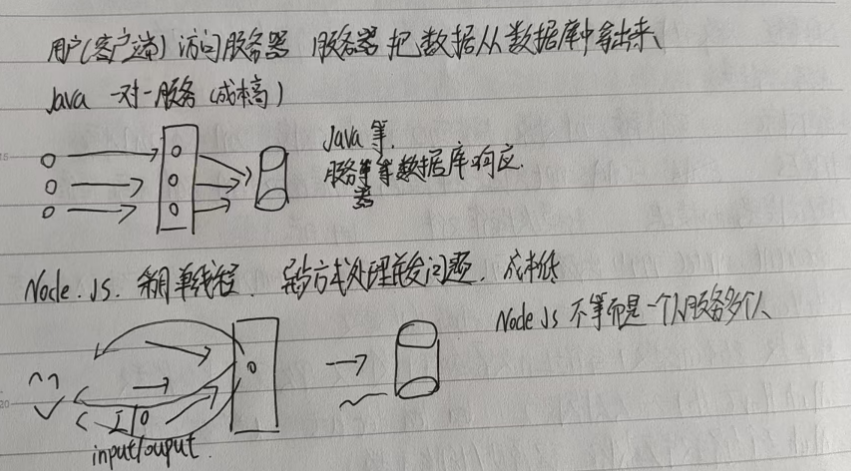 用户(客户端) 访问服务器 服务器 把数据从数据库中拿出来、
Java 一对一服务 (成本高)
Java 等.
服务等等数据库响应.
器
Node.js. 采用单线程. 异步方式处理并发问题. 成本低
Node Js 不等而是一个人服务多个人
I/O
input/ouput.
15
20